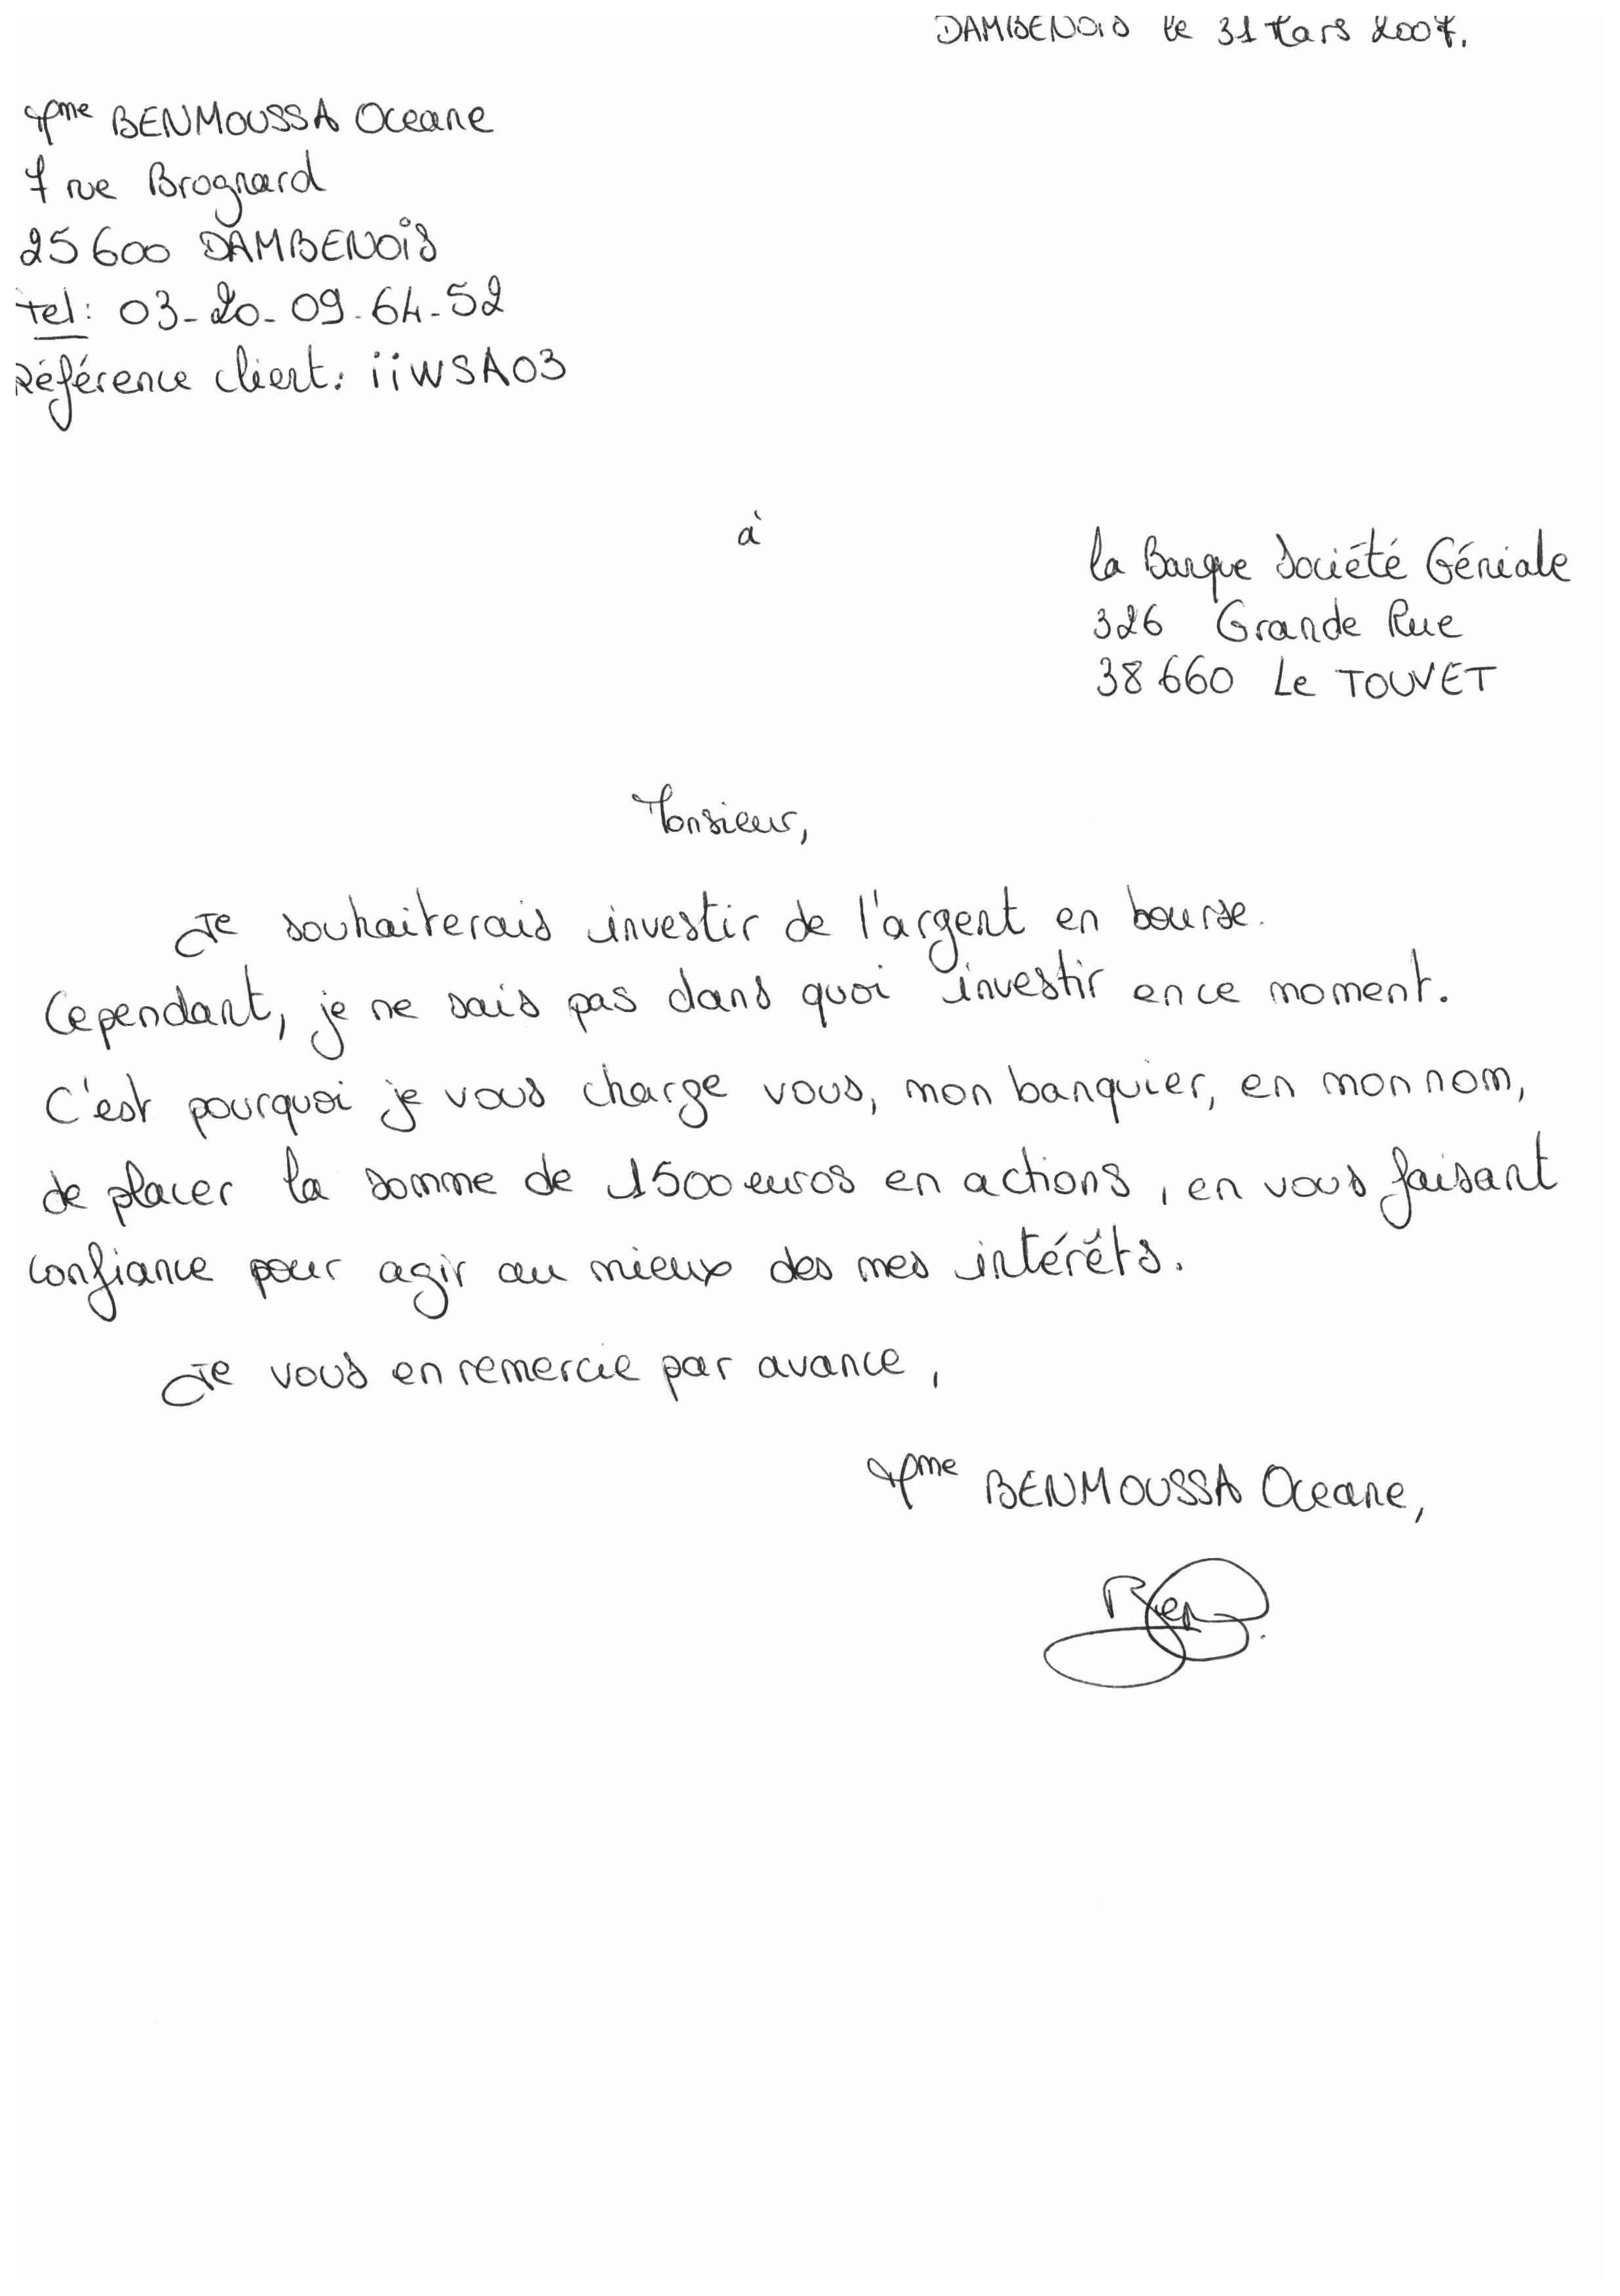 DAMBENOIS le 31 Mars 2007.
Mme BENMOUSSA Oceane
7 rue Brognard
25600 DAMBENOIS
tel: 03-20-09-64-52
Référence client: iiWSA03
à
la Banque Société Géniale
326 Grande Rue
38660 Le TOUVET
Monsieur,
Je souhaiterais investir de l'argent en bourse.
Cependant, je ne sais pas dans quoi investir en ce moment.
C'est pourquoi je vous charge vous, mon banquier, en mon nom,
de placer la somme de 1500 euros en actions, en vous faisant
confiance pour agir au mieux des mes intérêts.
Je vous en remercie par avance,
Mme BENMOUSSA Oceane,
Ben